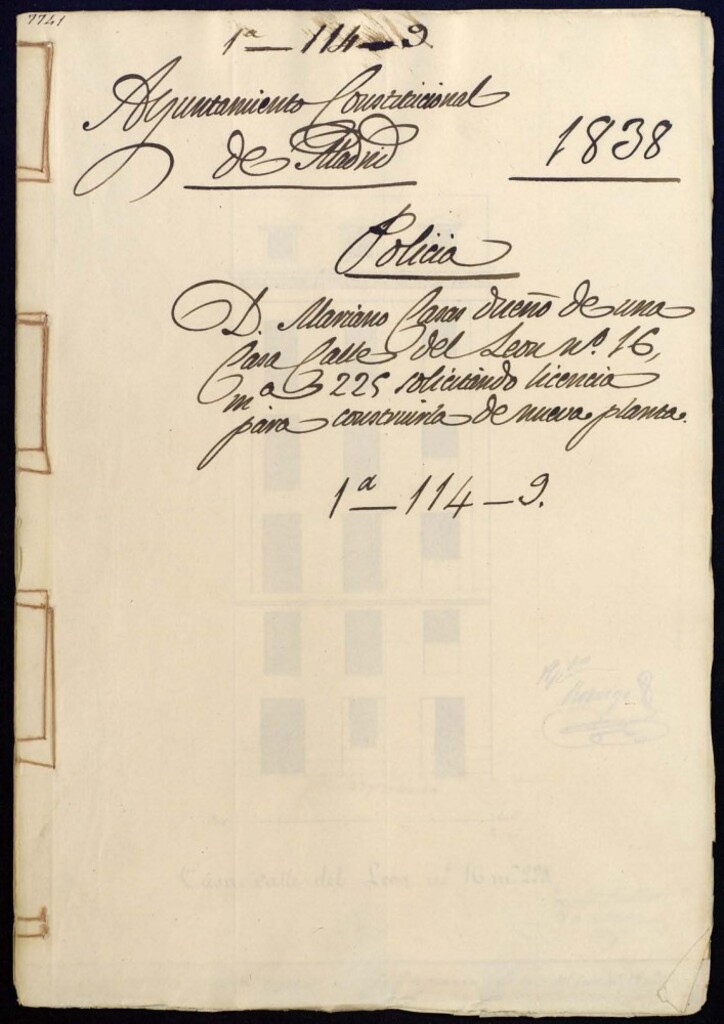 7741
1ª — 114 — 9.
Ayuntamiento Constitucional
de Madrid
1838
Policia
D. Mariano Casas dueño de una
Casa Calle del Leon nº. 16,
mª 225 solicitando licencia
para construirla de nueva planta.
1ª — 114 — 9.